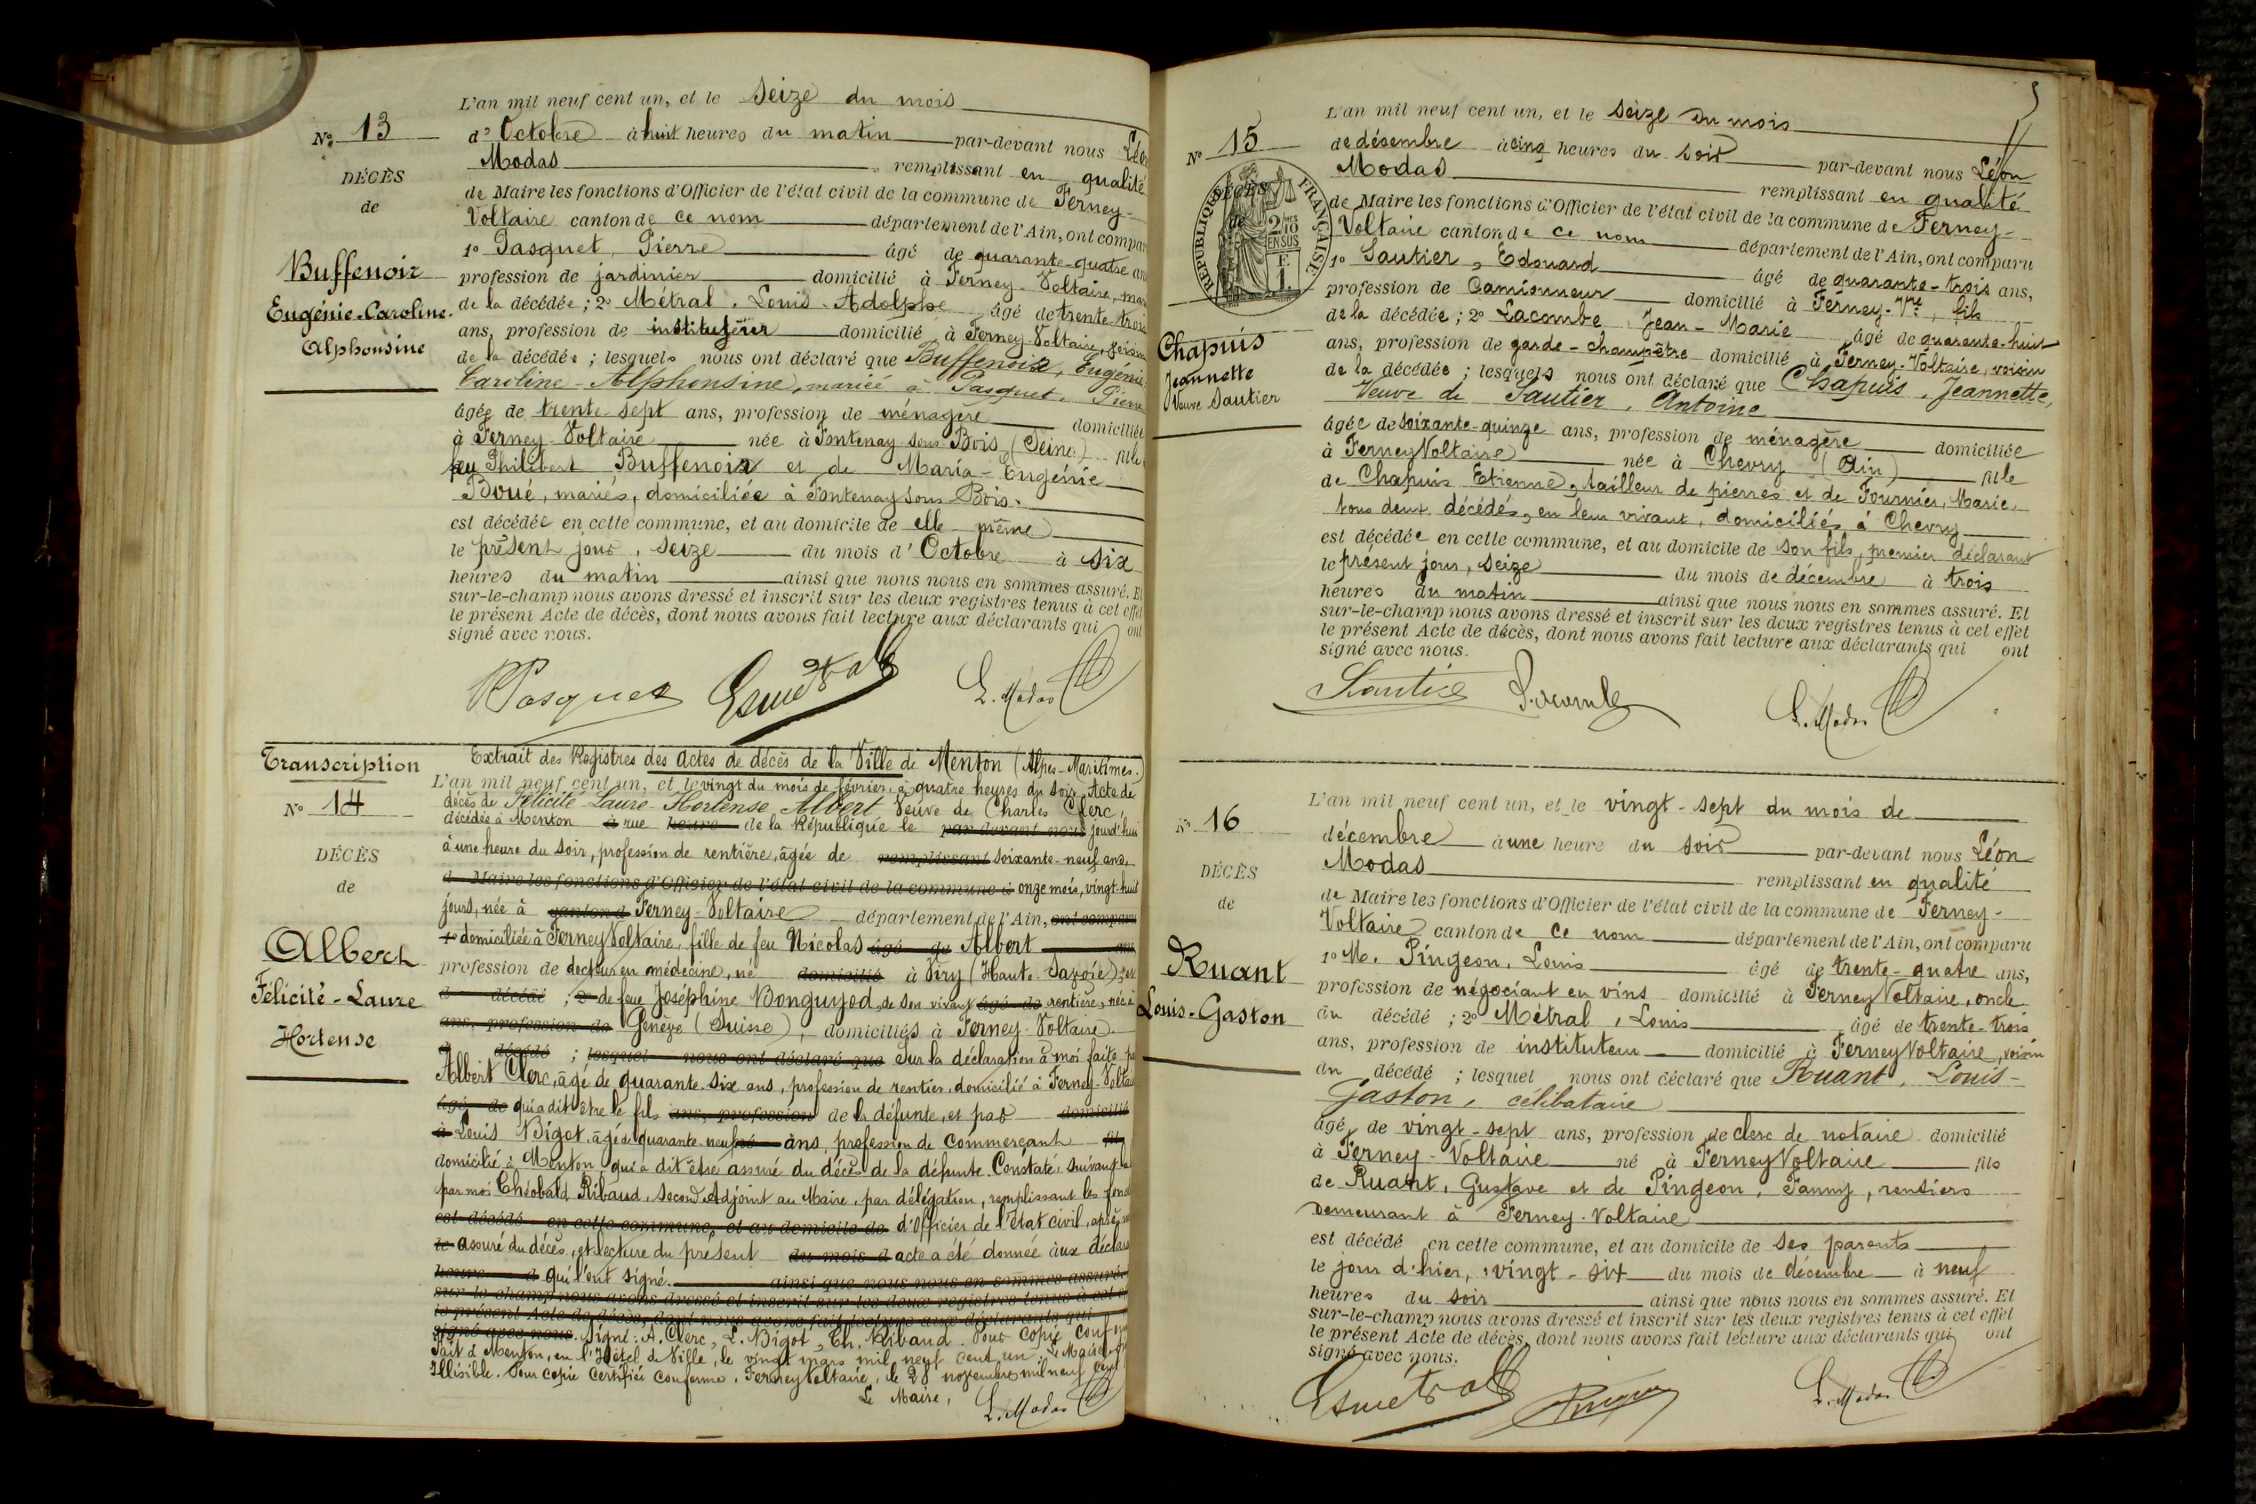 L'an mil neuf cent un, et le seize du mois
No. 13
d'Octobre à huit heures du matin par-devant nous Léon
Modas remplissant en qualité
DÉCÈS
de Maire les fonctions d'Officier de l'état civil de la commune de Ferney-
de
Voltaire canton de ce nom département de l'Ain, ont comparu
1o Pasquet, Pierre âgé de quarante-quatre ans
Buffenoir
profession de jardinier domicilié à Ferney-Voltaire, mari
Eugénie-Caroline-
de la décédée ; 2o Métral, Louis-Adolphe âgé de trente-trois
ans, profession de instituteur domicilié à Ferney-Voltaire, voisin
Alphonsine
de la décédée ; lesquels nous ont déclaré que Buffenoir, Eugénie,
Caroline-Alphonsine, mariée à Pasquet, Pierre
âgée de trente-sept ans, profession de ménagère domiciliée
à Ferney-Voltaire née à Fontenay sous Bois (Seine) fille
feu Philibert Buffenoir et de Maria-Eugénie
Boué, mariés, domiciliée à Fontenay sous Bois.
est décédée en cette commune, et au domicile de elle même
le présent jour, seize du mois d'Octobre à six
heures du matin ainsi que nous nous en sommes assuré. Et
sur-le-champ nous avons dressé et inscrit sur les deux registres tenus à cet effet
le présent Acte de décès, dont nous avons fait lecture aux déclarants qui ont
signé avec nous.
PPasquet Esmétral L. Modas
Transcription
Extrait des Registres des actes de décès de la Ville de Menton (Alpes-Maritimes.)
L'an mil neuf cent un, et le vingt du mois de février, à quatre heures du soir. Acte de
No 14
décès de Félicité-Laure-Hortense Albert Veuve de Charles Clerc,
décédée à Menton à rue heure de la République le par-devant nous jourd'hui
DÉCÈS
à une heure du soir, profession de rentière, âgée de remplissant soixante-neuf ans,
d Maire les fonctions d'Officier de l'état civil de la commune d onze mois, vingt-huit
de
jours, née à canton d Ferney-Voltaire département de l'Ain, ont comparu
Albert
1o domiciliée à Ferney Voltaire, fille de feu Nicolas âgé de Albert ans
profession de docteur en médecine, né domicilié à Viry (Haute-Savoie), et
Félicité-Laure
d décédé ; 2o de feue Joséphine Bonguyod, de son vivant âgé de rentière, née à
ans, profession de Genève (Suisse), domiciliés à Ferney-Voltaire.
Hortense
décédé ; lesquel nous ont déclaré que Sur la déclaration à moi faite par
Albert Clerc, âgé de quarante-six ans, profession de rentier, domicilié à Ferney-Voltaire
âgé de qui a dit être le fils ans, profession de la défunte, et par domicilié
à Louis Bigot, âgé de quarante-neuf né ans, profession de commerçant fil
domicilié à Menton qui a dit être assuré du décès de la défunte. Constaté, suivant la
par moi Théobald Ribaud, second Adjoint au Maire, par délégation, remplissant les fonct
est décédé en cette commune, et au domicile de d'Officier de l'état civil, après
le assuré du décès, et lecture du présent du mois d acte a été donnée aux déclara
heure d qui l'ont signé. ainsi que nous nous en sommes assuré
sur-le-champ nous avons dressé et inscrit sur les deux registres tenus à cet
le présent Acte de décès, dont nous avons fait lecture aux déclarants qui
signé avec nous. Signé: A. Clerc, L. Bigot, Th. Ribaud. Pour copie conforme
Fait à Menton, en l'Hôtel de Ville, le vingt mars mil neuf cent un. Le Maire
Illisible. Pour copie certifiée conforme. Ferney Voltaire, le 28 novembre mil neuf cent
Le Maire, L. Modas
5
L'an mil neuf cent un, et le seize du mois
No 15
de désembre à cinq heures du soir par-devant nous Léon
Modas remplissant en qualité
DÉCÈS
de
RÉPUBLIQUE FRANÇAISE
2/10 EN SUS
F. 1.
de Maire les fonctions d'Officier de l'état civil de la commune de Ferney-
Voltaire canton de ce nom département de l'Ain, ont comparu
1o Sautier, Edouard âgé de quarante-trois ans,
profession de Camionneur domicilié à Ferney-Vre, fils
Chapuis
de la décédée ; 2o Lacombe, Jean-Marie âgé de quarante-huit
Jeannette
ans, profession de garde-champêtre domicilié à Ferney-Voltaire, voisin
Veuve Sautier
de la décédée ; lesquels nous ont déclaré que Chapuis, Jeannette,
Veuve de Sautier, Antoine
âgée de soixante-quinze ans, profession de ménagère domiciliée
à Ferney Voltaire née à Chevry (Ain) fille
de Chapuis Etienne, tailleur de pierres et de Fournier, Marie,
tous deux décédés, en leur vivant, domiciliés à Chevry
est décédée en cette commune, et au domicile de son fils, premier déclarant
le présent jour, seize du mois de décembre à trois
heures du matin ainsi que nous nous en sommes assuré. Et
sur-le-champ nous avons dressé et inscrit sur les deux registres tenus à cet effet
le présent Acte de décès, dont nous avons fait lecture aux déclarants qui ont
signé avec nous.
Sautier Lacombe L. Modas
L'an mil neuf cent un, et le vingt-sept du mois de
No 16
décembre à une heure du soir par-devant nous Léon
Modas remplissant en qualité
DÉCÈS
de Maire les fonctions d'Officier de l'état civil de la commune de Ferney-
de
Voltaire canton de ce nom département de l'Ain, ont comparu
Ruant
1o M. Pingeon, Louis âgé de trente-quatre ans,
profession de négociant en vins domicilié à Ferney Voltaire, oncle
Louis-Gaston
du décédé ; 2o Métral, Louis âgé de trente-trois
ans, profession de instituteur domicilié à Ferney Voltaire, voisin
du décédé ; lesquel nous ont déclaré que Ruant, Louis-
Gaston, célibataire
âgé de vingt-sept ans, profession de clerc de notaire domicilié
à Ferney-Voltaire né à Ferney Voltaire fils
de Ruant, Gustave et de Pingeon, Fanny, rentiers
demeurant à Ferney-Voltaire
est décédé en cette commune, et au domicile de ses parents
le jour d'hier, vingt-six du mois de décembre à neuf
heures du soir ainsi que nous nous en sommes assuré. Et
sur-le-champ nous avons dressé et inscrit sur les deux registres tenus à cet effet
le présent Acte de décès, dont nous avons fait lecture aux déclarants qui ont
signé avec nous.
Esmétral Pingeon L. Modas